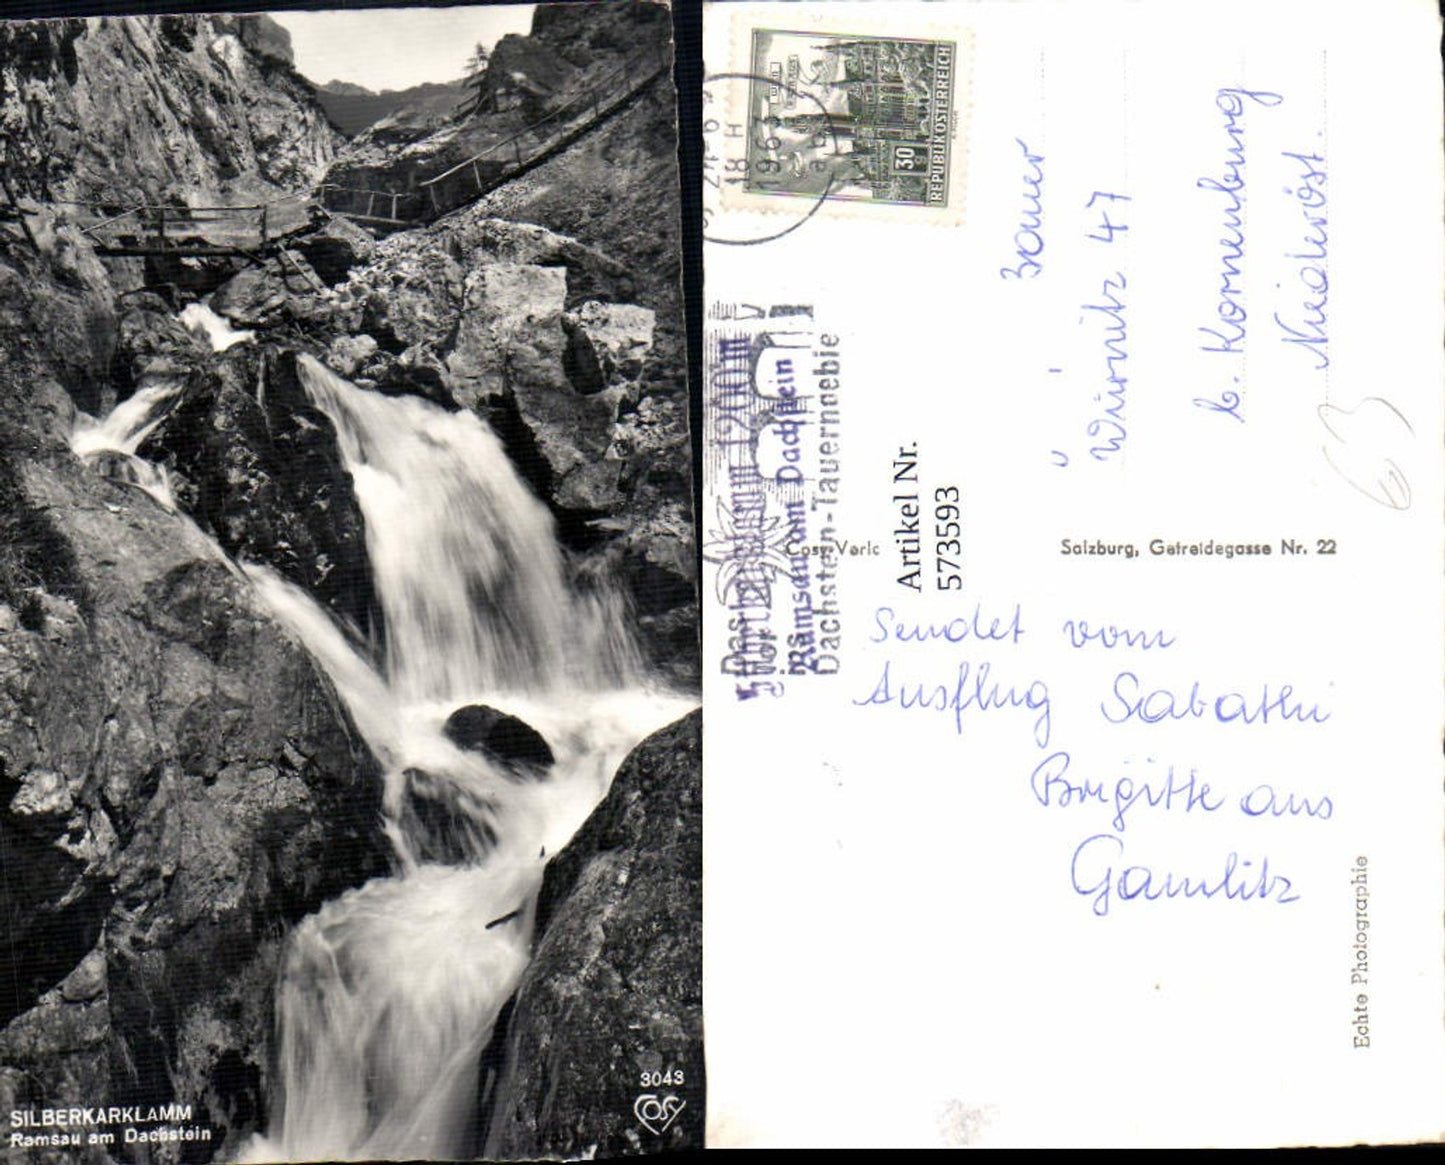 3043
COSY
SILBERKARKLAMM
Ramsau am Dachstein
REPUBLIK ÖSTERREICH
30
18 H
1963
1200 m
Ramsau am Dachstein
Dachstein-Tauerngebie
Artikel Nr.
573593
Cosy Verlc
Salzburg, Getreidegasse Nr. 22
47
b. Korneuburg
Niederöst.
63
Sendet vom
Ausflug Sabathi
Brigitte aus
Gamlitz
Echte Photographie